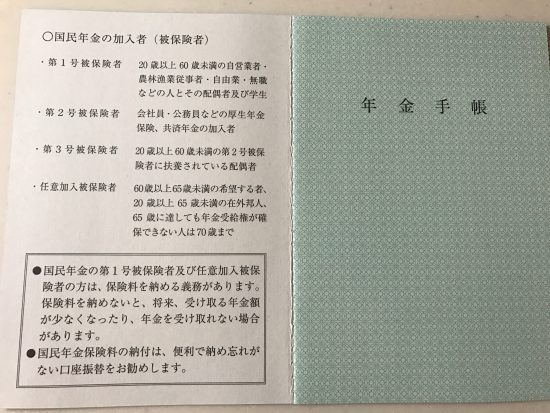 ○国民年金の加入者(被保険者)
・第1号被保険者 20歳以上60歳未満の自営業者・
農林漁業従事者・自由業・無職
などの人とその配偶者及び学生
・第2号被保険者 会社員・公務員などの厚生年金
保険、共済年金の加入者
・第3号被保険者 20歳以上60歳未満の第2号被保
険者に扶養されている配偶者
・任意加入被保険者 60歳以上65歳未満の希望する者、
20歳以上65歳未満の在外邦人、
65歳に達しても年金受給権が確
保できない人は70歳まで
●国民年金の第1号被保険者及び任意加入被保
険者の方は、保険料を納める義務があります。
保険料を納めないと、将来、受け取る年金額
が少なくなったり、年金を受け取れない場合
があります。
●国民年金保険料の納付は、便利で納め忘れが
ない口座振替をお勧めします。
年金手帳